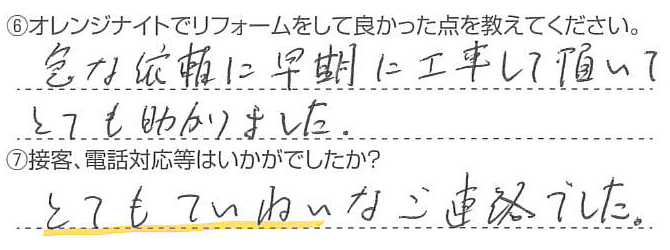 ⑥オレンジナイトでリフォームをして良かった点を教えてください。
急な依頼に早期に工事して頂いて
とても助かりました.
⑦接客、電話対応等はいかがでしたか?
とてもていねいなご連絡でした。